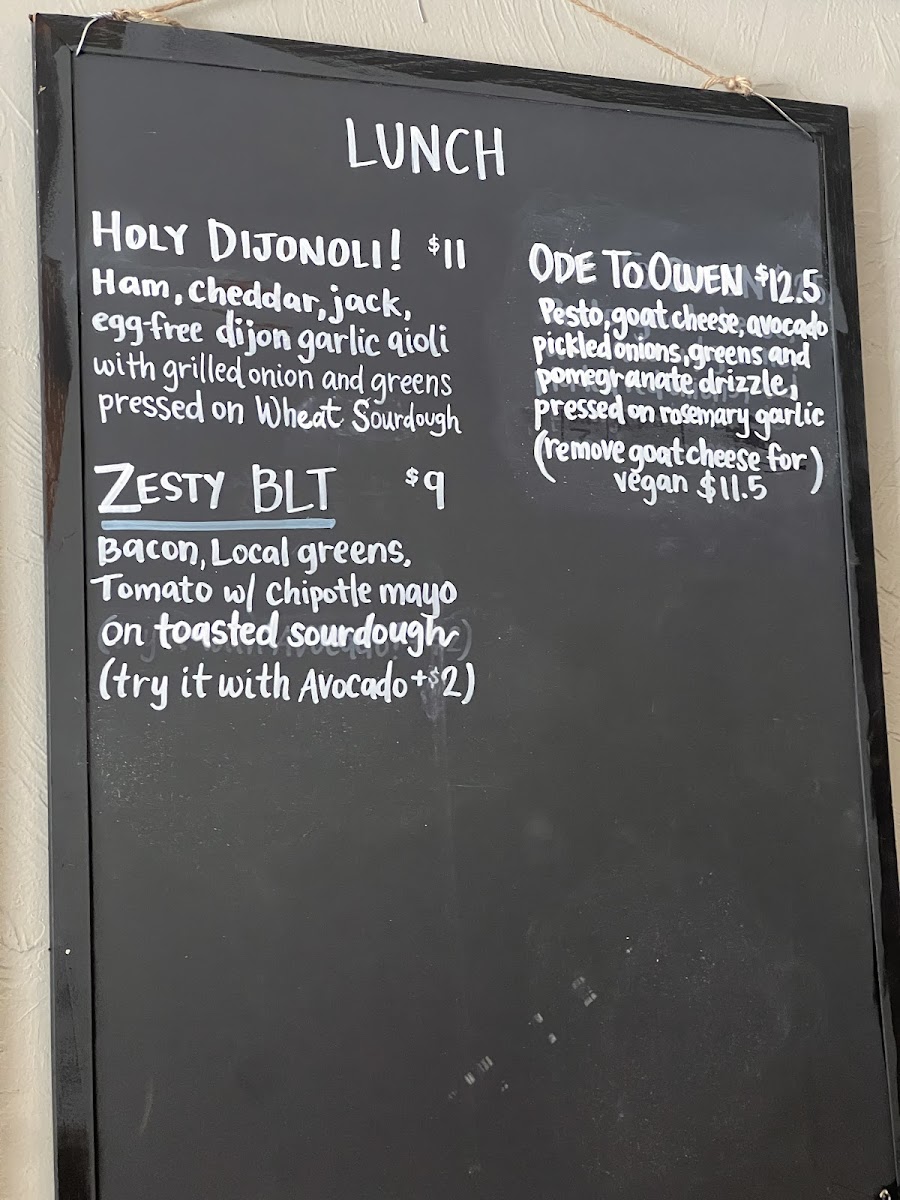 LUNCH
HOLY DIJONOLI! $11
Ham, cheddar, jack,
egg-free dijon garlic aioli
with grilled onion and greens
pressed on Wheat Sourdough
ZESTY BLT $9
Bacon, Local greens.
Tomato w/ chipotle mayo
on toasted sourdough
(try it with Avocado +$2)
ODE TO OWEN $12.5
Pesto, goat cheese, avocado
pickled onions, greens and
pomegranate drizzle,
pressed on rosemary garlic
(remove goat cheese for)
vegan $11.5